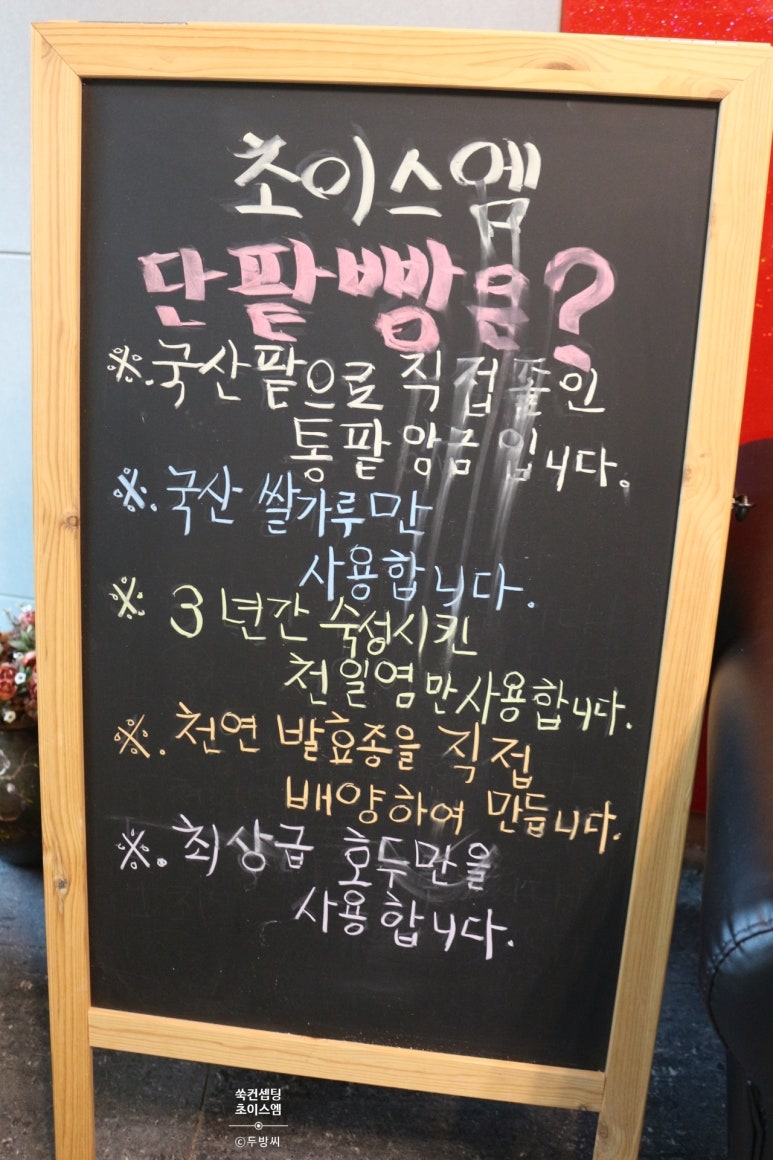 초이스엠
단팥빵은?
※. 국산팥으로 직접 졸인
통팥 앙금입니다.
※. 국산 쌀가루만
사용합니다.
※ 3년간 숙성시킨
천일염만사용합니다.
※. 천연 발효종을 직접
배양하여 만듭니다.
※. 최상급 호두만을
사용합니다.
쑥컨셉팅
초이스엠
©두방씨